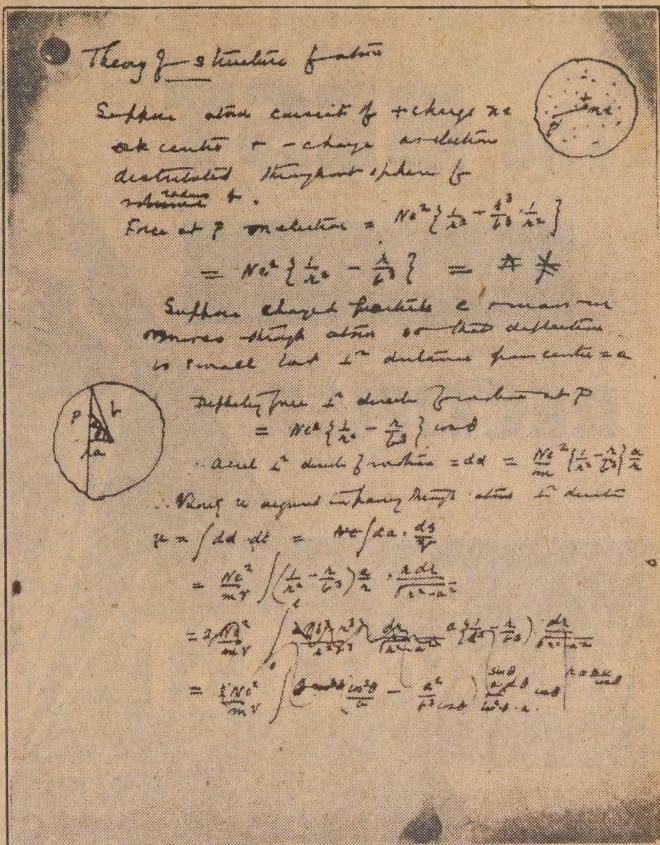 Theory of structure of atom
Suppose atom consists of + charge ne
at centre + - charge as electrons
distributed throughout sphere of
radius b.
Force at P on electron = Ne² { 1/r² - r³/b³ · 1/r² }
= Ne² { 1/r² - r/b³ } =
Suppose charged particle e + mass m
moves through atom so that deflection
is small and ⊥ʳ distance from centre = a
Deflecting force ⊥ʳ direction of motion at P
= Ne² { 1/r² - r/b³ } cos θ
∴ accel ⊥ʳ direction of motion = dd = Ne²/m { 1/r² - r/b³ } a/r
∴ Velocity u acquired in passing through atom ⊥ʳ direction
u = ∫ dd · dt = ∫ da · ds/v
= Ne²/mv ∫ ( 1/r² - r/b³ ) a/r · r dr/√r²-a²
= 2 Ne²/mv ∫ a { 1/r² - r/b³ } · dr/√r²-a²
= 2Ne²/mv ∫ cos²θ/a - a²/b³ cos θ
P ne
P b a